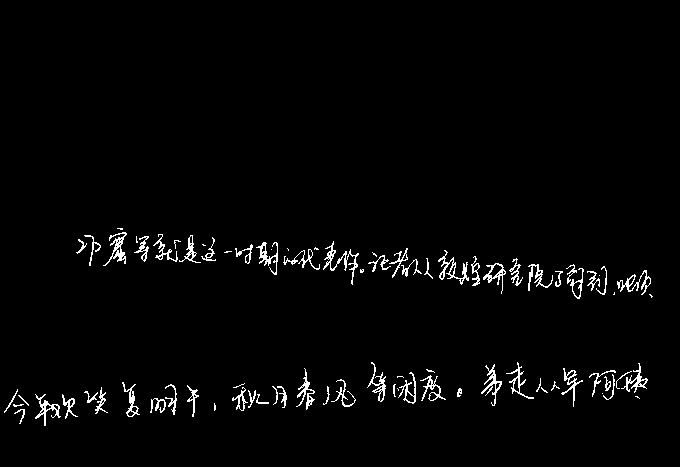 邛窑等就是这一时期的代表作。记者从敦煌研究院了解到,此项
今年欢笑复明年,秋月春风等闲度。弟走从军阿姨